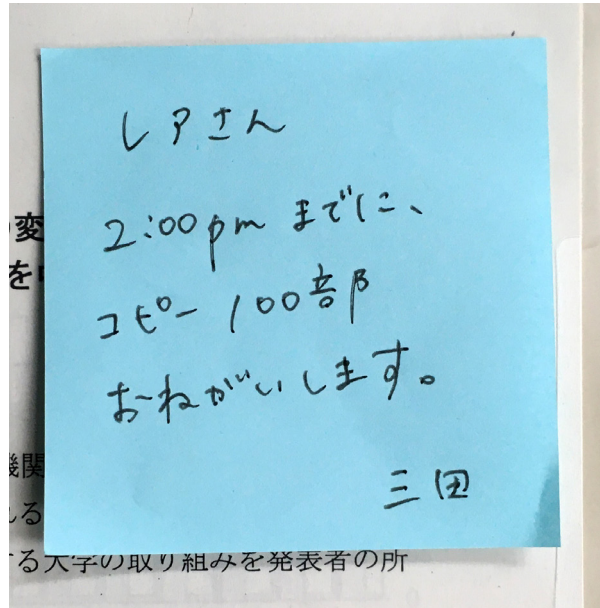 レアさん
2:00pm までに、
コピー 100部
おねがいします。
三田
変
を
機関
る
する大学の取り組みを発表者の所